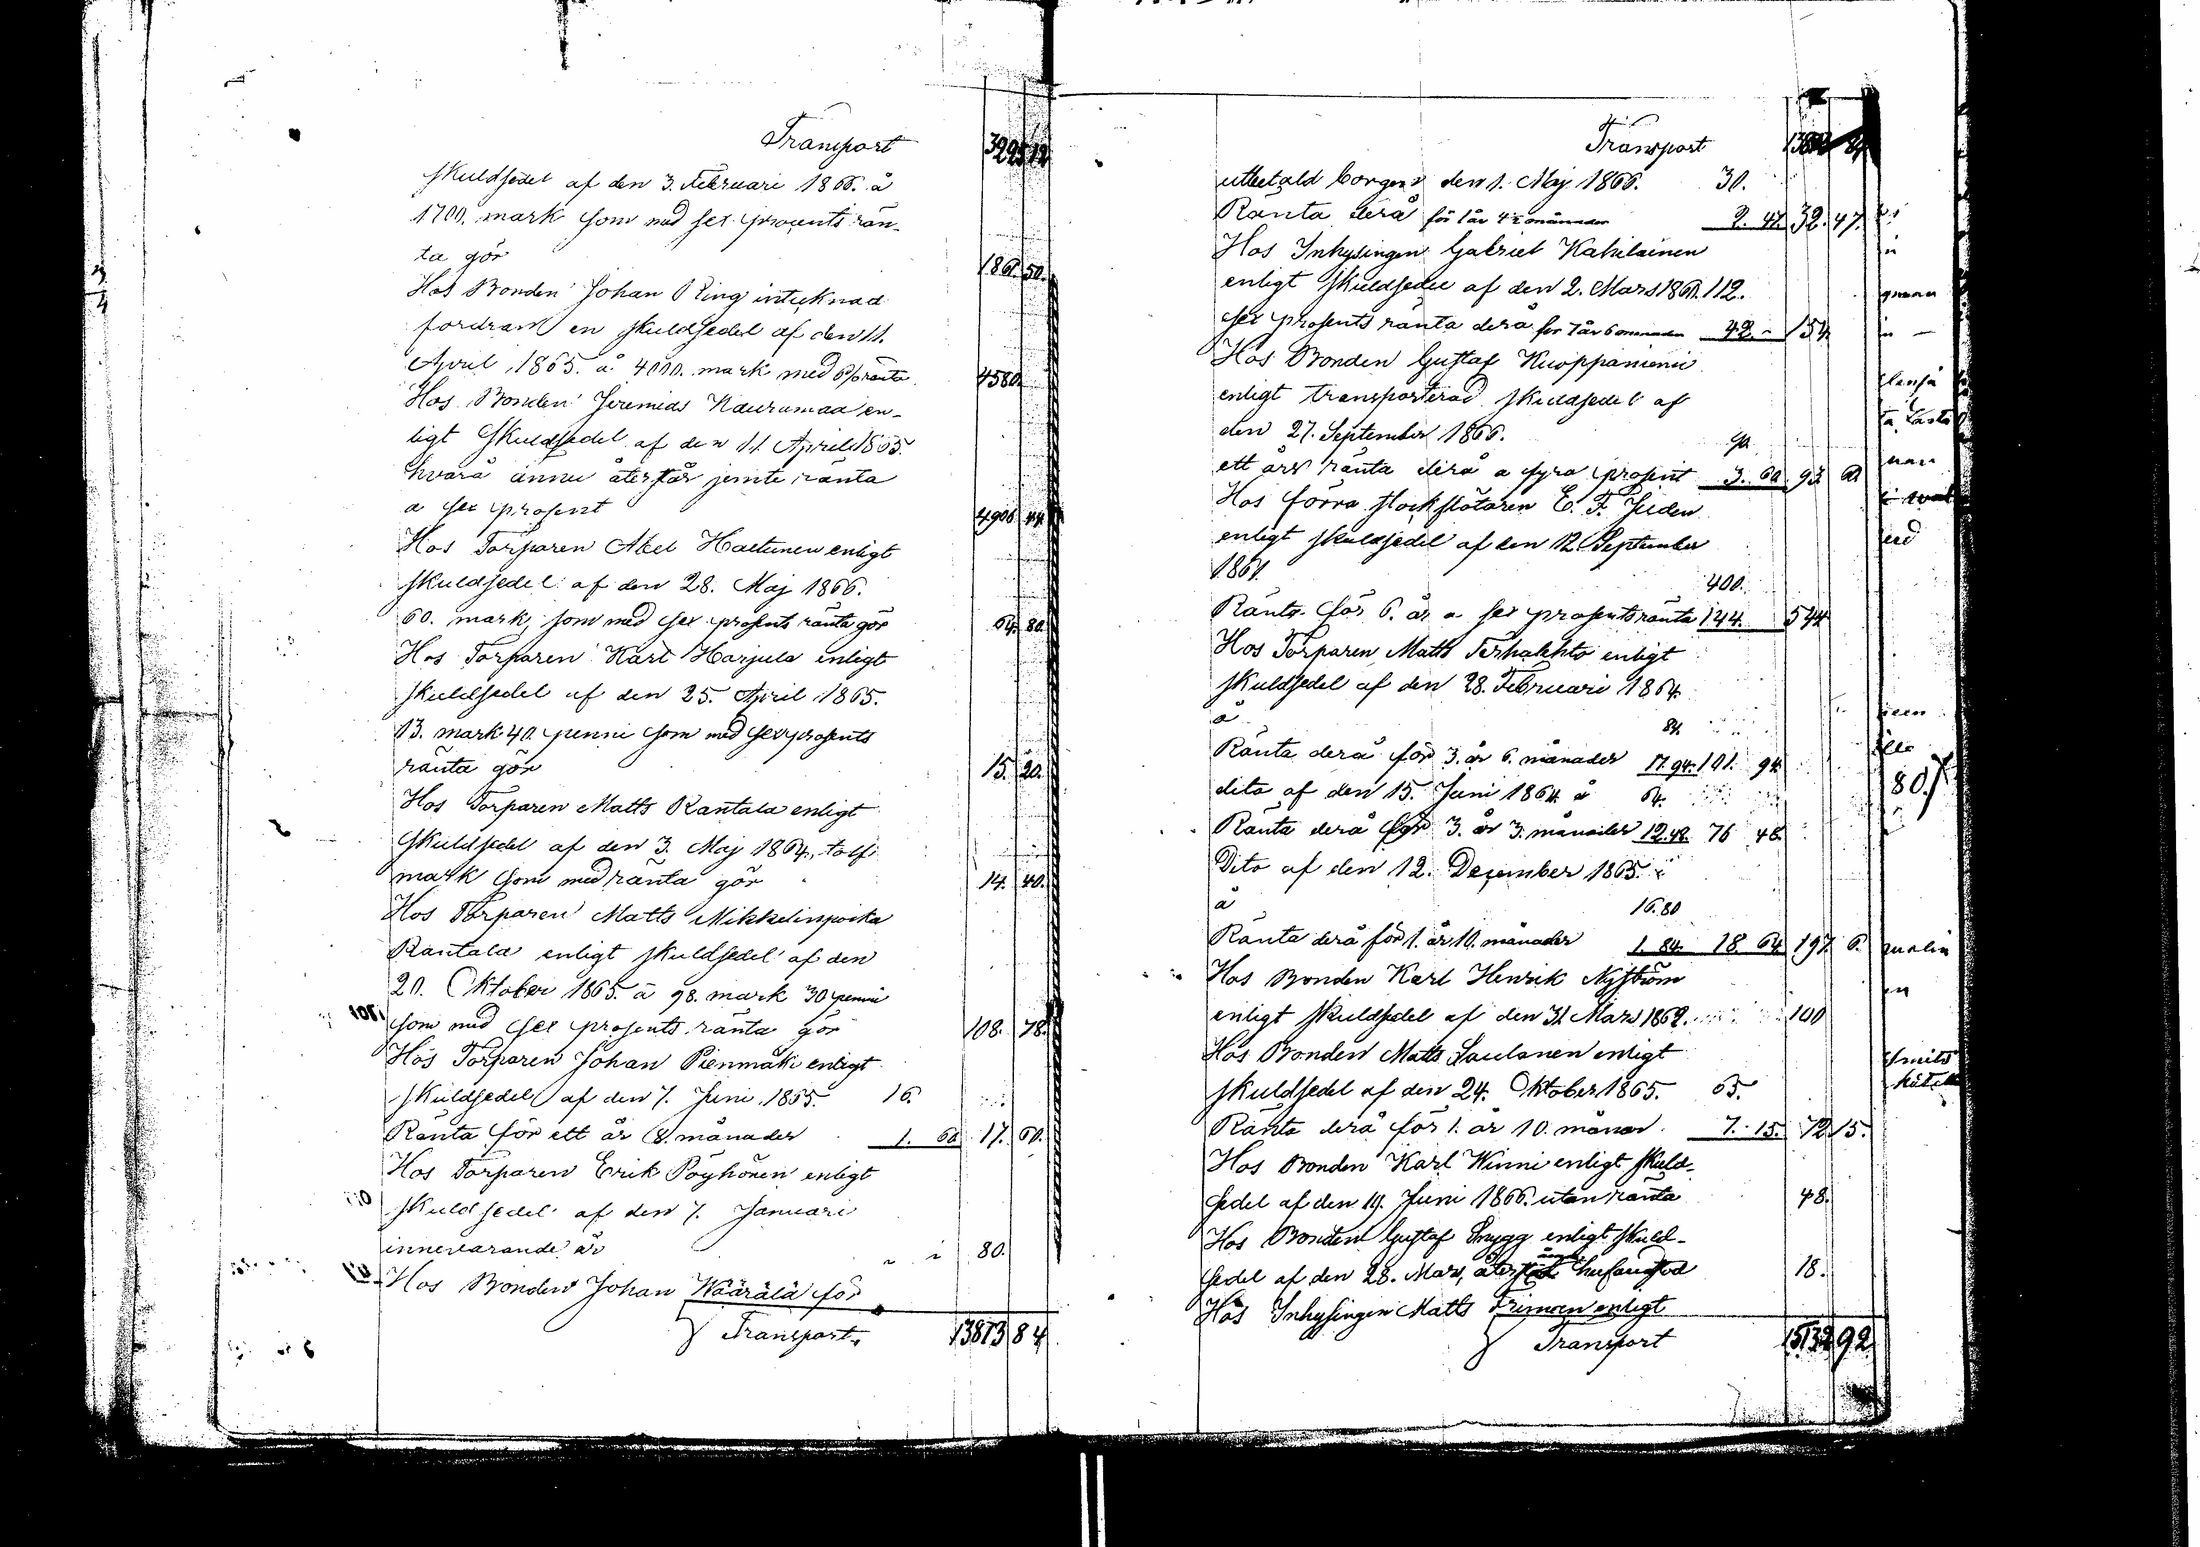 Transport 3225 12
skuldsedel af den 3. Februari 1866. å
1700. mark som med sex procents rän-
ta gör 1861. 50.
Hos Bonden Johan Ring intecknad
fordran en skuldsedel af den 11.
April 1865. å 4000. mark med 6% ränta 4580.
Hos Bonden Jeremias Nauramaa en-
ligt Skuldsedel af den 11. April 1865.
hvarå ännu återstår jemte ränta
a sex prosent 3906 44.
Hos Torparen Abel Haetunen enligt
skuldsedel af den 28. Maj 1866.
60. mark, som med sex prosents ränta gör 64. 80.
Hos Torparen Karl Harjula enligt
skuldsedel af den 25. April 1865.
13. mark 40 penni som med sex prosents
ränta gör 15. 20.
Hos Torparen Matts Rantala enligt
Skuldsedel af den 3. Maj 1864, tolf
mark som med ränta gör 14. 40.
Hos Torparen Matts Mikkelinpoika
Rantala enligt skuldsedel af den
20. Oktober 1865. å 98. mark 30 penni
som med sex prosents ränta gör 108. 78.
Hos Torparen Johan Pienmäki enligt
skuldsedel af den 7. Juni 1865. 16.
Ränta för ett år 8. månader 1. 60 17. 60.
Hos Torparen Erik Pöyhönen enligt
skuldsedel af den 7. Januari
innevarande år 80.
Hos Bonden Johan Wäärälä för
Transport. 13873 84
Transport 13873 84
utbetald borgen den 1. Maj 1866. 30.
Ränta derå för 1 år 4½ månader 2. 47. 32. 47.
Hos Inhysingen Gabriel Kakilainen
enligt skuldsedel af den 2. Mars 1861. 112.
sex prosents ränta derå for 7 år 6 månader 42. 154.
Hos Bonden Gustaf Kuoppaniemi
enligt transporterad skuldsedel af
den 27. September 1866. 90.
ett års ränta derå a fyra prosent 3. 60 93 60
Hos förra stockflötaren E. F. Juden
enligt skuldsedel af den 12. September
1861. 400.
Ränta för 6. år a sex prosents ränta 144. 544
Hos Torparen Matts Terhalahto enligt
skuldsedel af den 28. Februari 1864.
å 84.
Ränta derå för 3. år 6. månader 17. 94. 101. 94.
dito af den 15. Juni 1864. å 64.
Ränta derå för 3. år 3. månader 12. 48. 76 48.
Dito af den 12. December 1865.
å 16. 80
Ränta derå för 1. år 10. månader 1. 84. 18 64 197. 6.
Hos Bonden Karl Henrik Nyström
enligt skuldsedel af den 31. Mars 1862. 100
Hos Bonden Matts Saulanen enligt
skuldsedel af den 24. Oktober 1865. 65.
Ränta derå för 1. år 10. månar 7. 15. 72 15.
Hos Bonden Karl Winni enligt skuld-
sedel af den 19. Juni 1866. utan ränta 48.
Hos Bonden Gustaf Snygg enligt skuld-
sedel af den 28. Mars, 18.
Hos Inhysingen Matts Trimoen enligt
Transport 15132 92